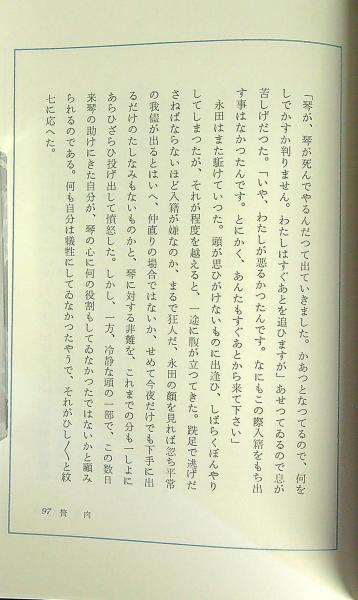 「琴が、琴が死んでやるんだつて出ていきました。かあつとなつてるので、何を
しでかすか判りません。わたしはすぐあとを追ひますが」あせつてゐるので息が
苦しげだつた。「いや、わたしが悪るかつたんです。なにもこの際入籍をもち出
す事はなかつたんです。とにかく、あんたもすぐあとから来て下さい」
永田はまた駈けていつた。頭が思ひがけないものに出逢ひ、しばらくぼんやり
してしまつたが、それが程度を越えると、一途に腹が立つてきた。跣足で逃げだ
さねばならないほど入籍が嫌なのか、まるで狂人だ、永田の顔を見れば忽ち平常
の我儘が出るとはいへ、仲直りの場合ではないか、せめて今夜だけでも下手に出
るだけのたしなみもないものかと、琴に対する非難を、これまでの分も一しよに
あらひざらひ投げ出して憤怒した。しかし、一方、冷静な頭の一部で、この数日
来琴の助けにきた自分が、琴の心に何の役割もしてゐなかつたではないかと顧み
られるのである。何も自分は犠牲にしてゐなかつたやうで、それがひし〳〵と紋
七に応へた。
97 贅肉